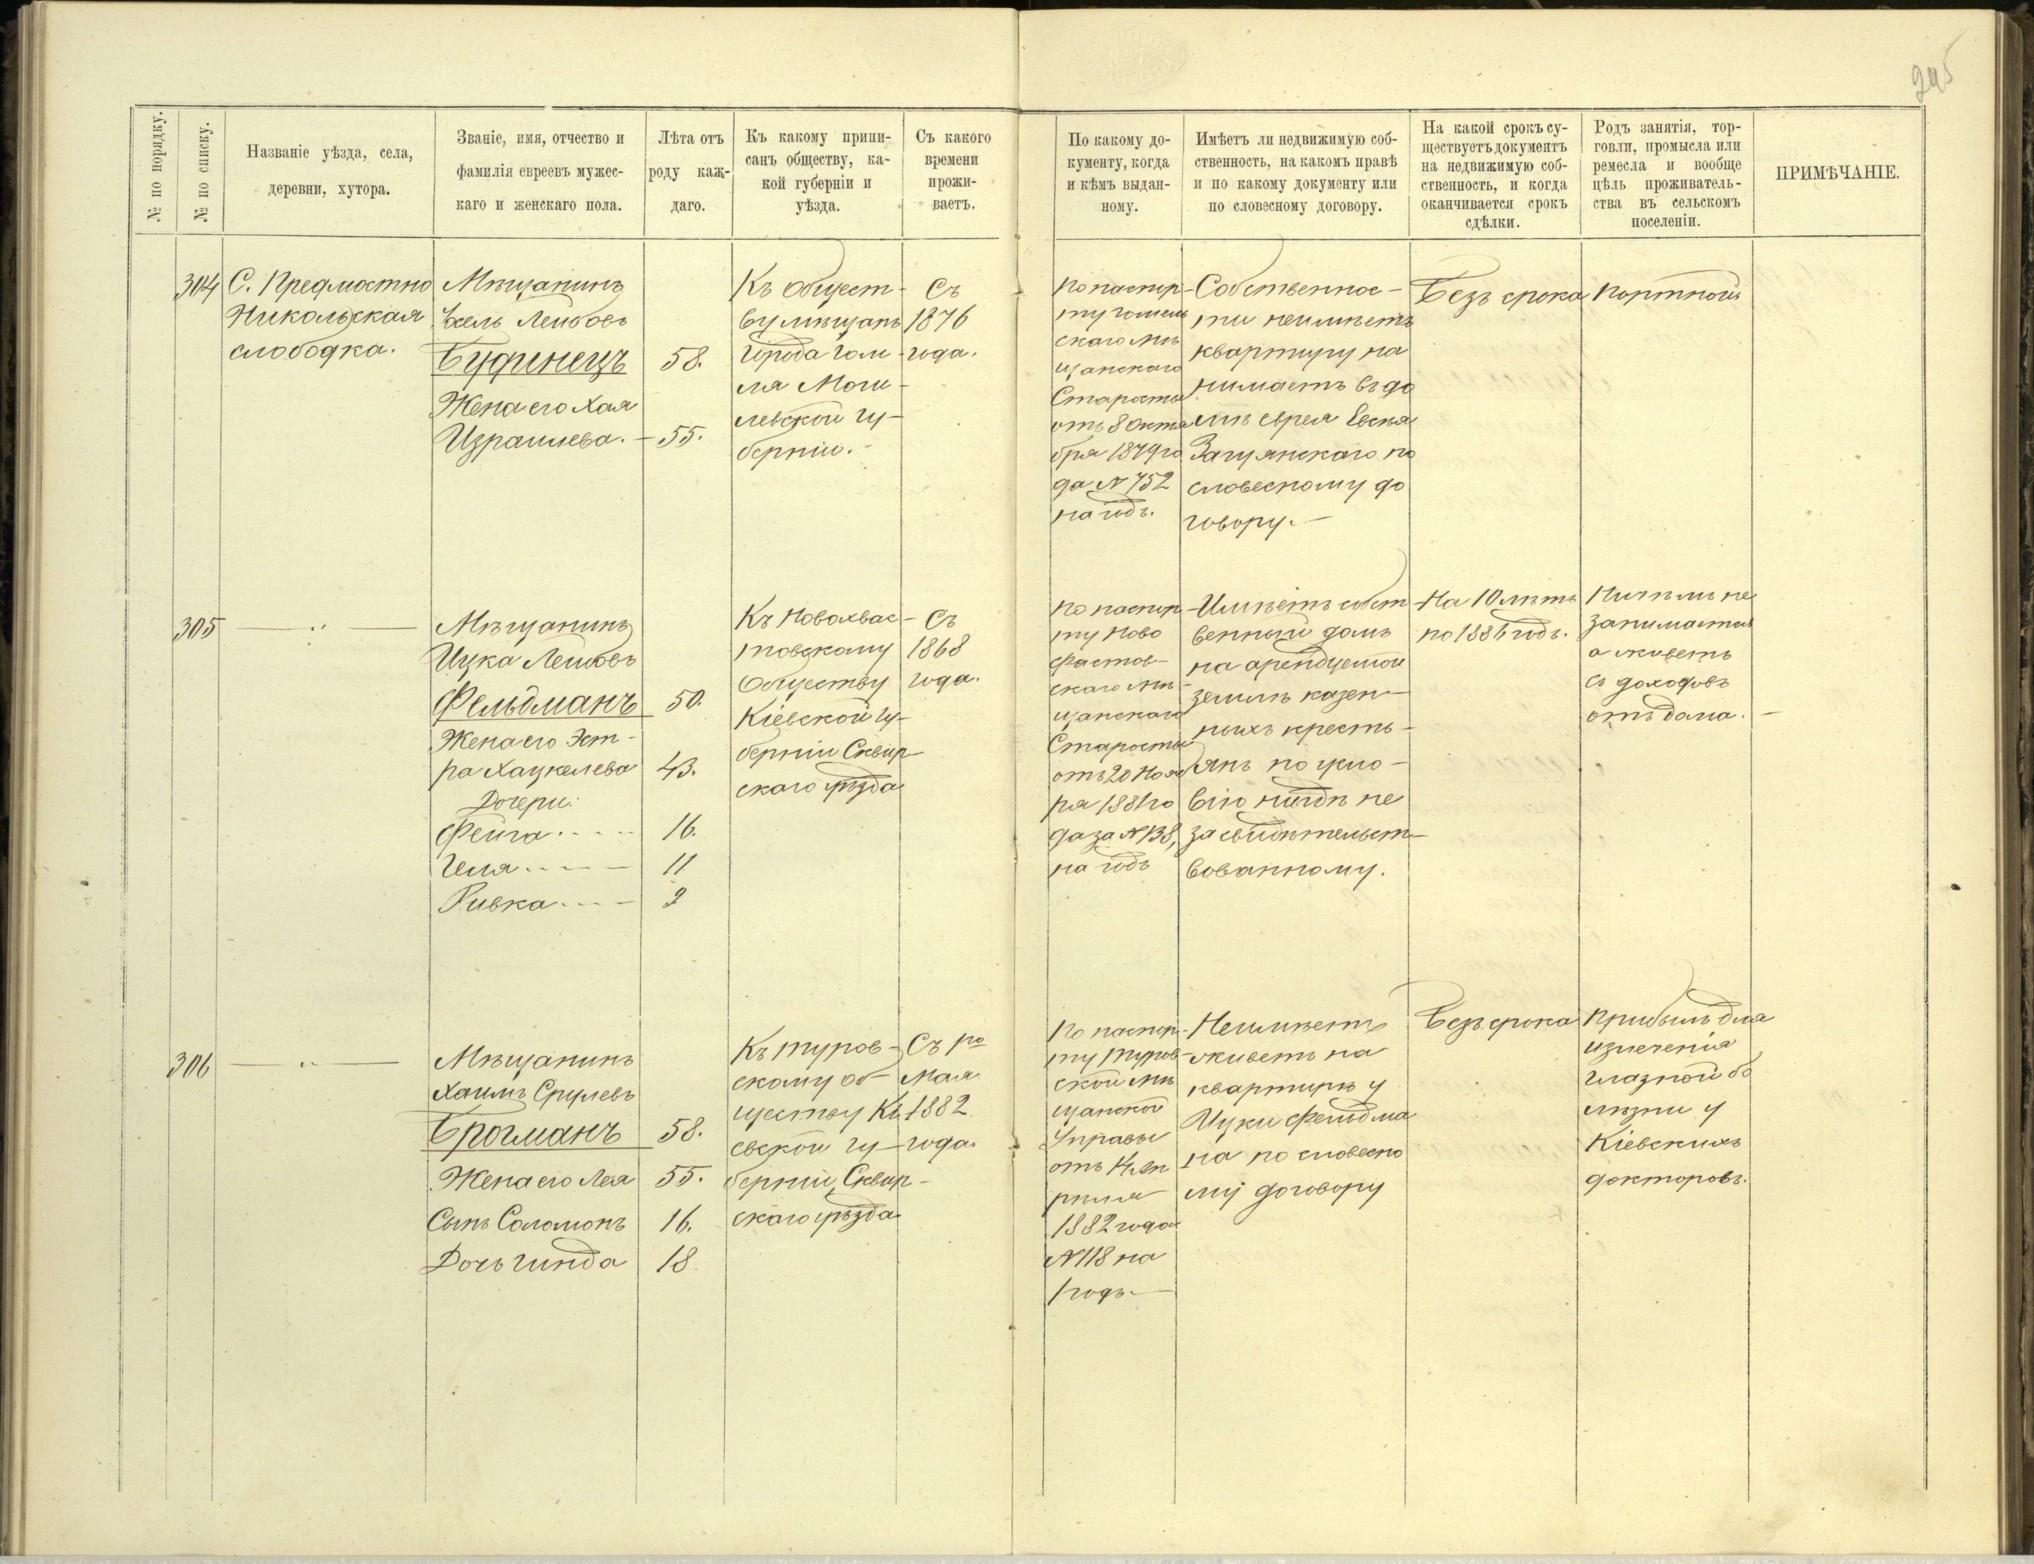 295
№ по порядку.
№ по списку.
Названіе уѣзда, села,
деревни, хутора.
Званіе, имя, отчество и
фамилія евреевъ мужес-
каго и женскаго пола.
Лѣта отъ
роду каж-
даго.
Къ какому припи-
санъ обществу, ка-
кой губерніи и
уѣзда.
Съ какого
времени
прожи-
ваетъ.
По какому до-
кументу, когда
и кѣмъ выдан-
ному.
Имѣетъ ли недвижимую соб-
ственность, на какомъ правѣ
и по какому документу или
по словесному договору.
На какой срокъ су-
ществуетъ документъ
на недвижимую соб-
ственность, и когда
оканчивается срокъ
сдѣлки.
Родъ занятія, тор-
говли, промысла или
ремесла и вообще
цѣль проживатель-
ства въ сельскомъ
поселеніи.
ПРИМѢЧАНІЕ.
304
С. Предмостно
Никольская
слободка.
Мѣщанинъ
Лейбовъ
Будинецъ
Жена его Хая
Израилева. —
58.
55.
Къ Общест-
ву мѣщанъ
города Гом-
ля Моги-
левской гу-
берніи. -
Съ
1876
года.
По паспор-
ту гомель
скаго мѣ
щанскаго
Старосты
отъ 8 Октя
бря 1879 го
да № 752
на годъ.
Собственнос-
ти неимѣетъ
квартиру на
нимаетъ въ до
мѣ еврея Евсѣя
Загуянскаго по
словесному до
говору. —
Безъ срока
Портной
305
— " —
Мѣщанинъ
Ицка Лейбовъ
Фельдманъ
Жена его Эст-
ра Хацкелева
Дочери:
Фейга. - - -
Геля. - - - —
Ривка. - - - —
50.
43.
16.
11
9
Къ Новохвас-
товскому
Обществу
Кіевской гу-
берніи Сквир-
скаго уѣзда
Съ
1868
года.
По паспор-
ту Ново
фастов-
скаго мѣ-
щанскаго
Старосты
отъ 20 Нояб
ря 1881 го
да за № 138,
на годъ
Имѣетъ собст
венный домъ
на арендуемой
землѣ казен-
ныхъ кресть-
янъ по усло-
вію нигдѣ не
засвидѣтельст-
вованному.
На 10 лѣтъ
по 1886 годъ.
Ничѣмъ не
занимается
а живетъ
съ доходовъ
отъ дома. —
306
— " —
Мѣщанинъ
Хаимъ Срулевъ
Брогманъ
Жена его Лея
Сынъ Соломонъ
Дочь Гинда
58.
55.
16.
18.
Къ туров-
скому об-
ществу Кі
евской гу-
берніи, Сквир-
скаго уѣзда
Съ 1го
Мая
1882
года.
По паспор-
ту туров-
ской мѣ
щанской
Управы
отъ Ап
рѣля
1882 года
№ 118 на
1 годъ. —
Неимѣетъ
живетъ на
квартирѣ у
Ицки Фельдма
на по словесно
му договору
Безъ срока
Прибылъ для
излеченія
глазной бо
лѣзни у
Кіевскихъ
докторовъ.